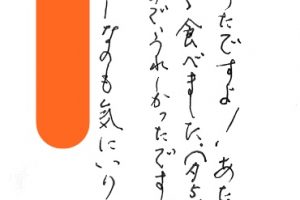 ったですよ！、あた
食べました。（夕5、
でうれしかったです
ーなのも気にいり